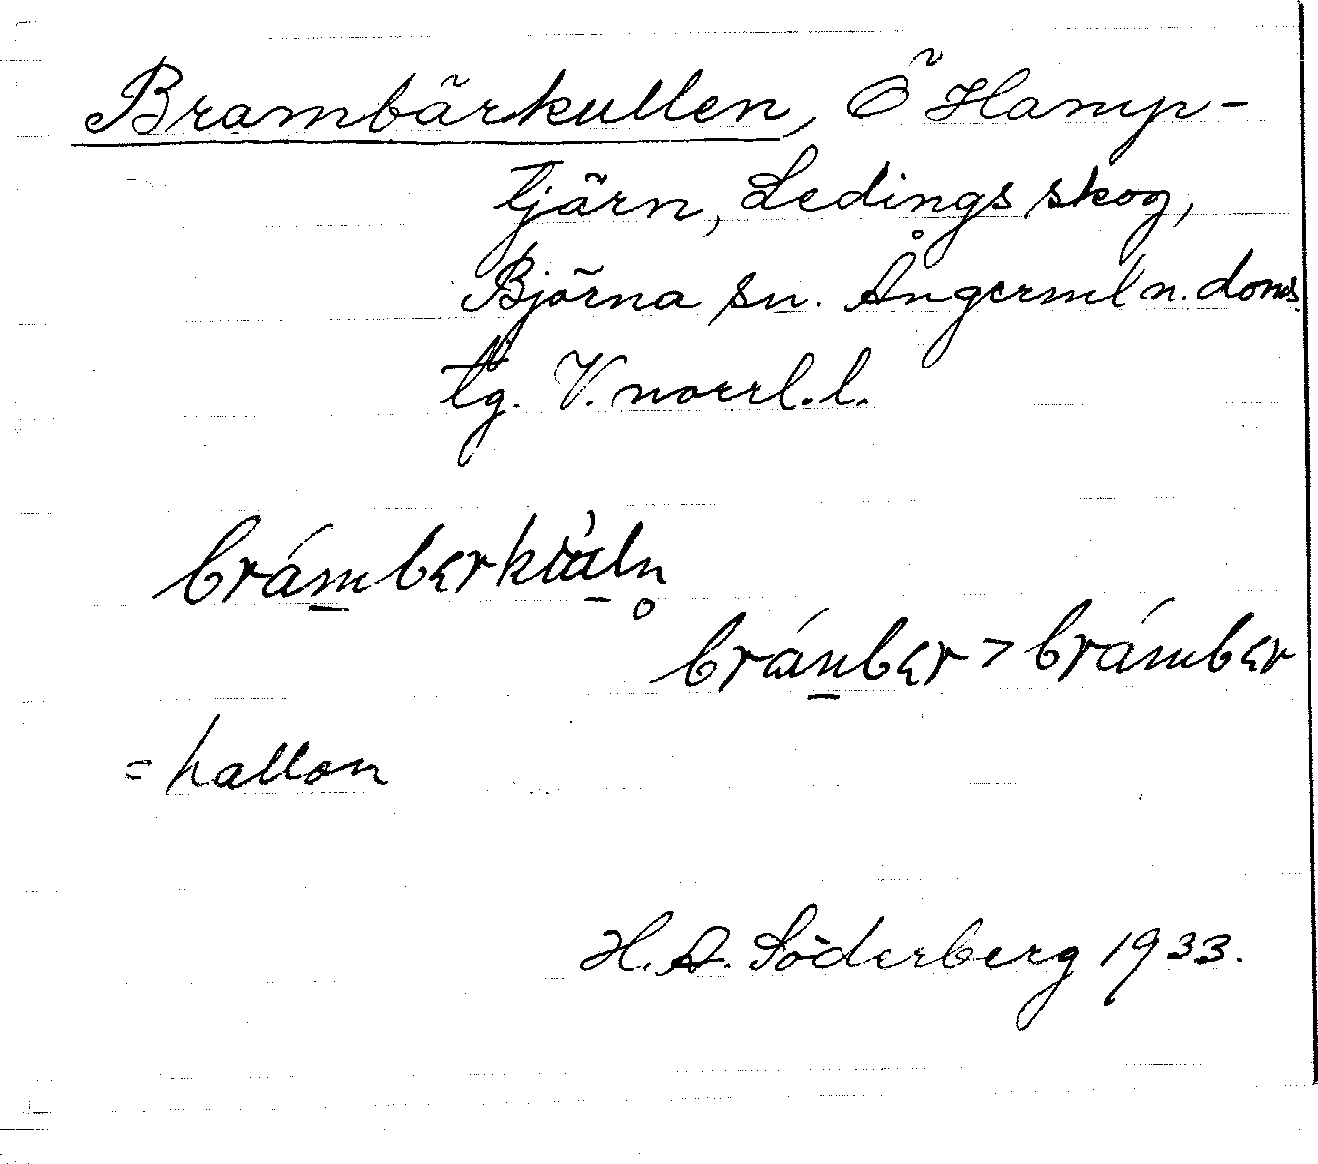 Brambärkullen, Ö Hamp-
tjärn, Ledings skog,
Björna sn. Ångerml n. doms.
tg. V. norrl. l.
brámber
brámber > brámber
= hallon
H. A. Söderberg 1933.